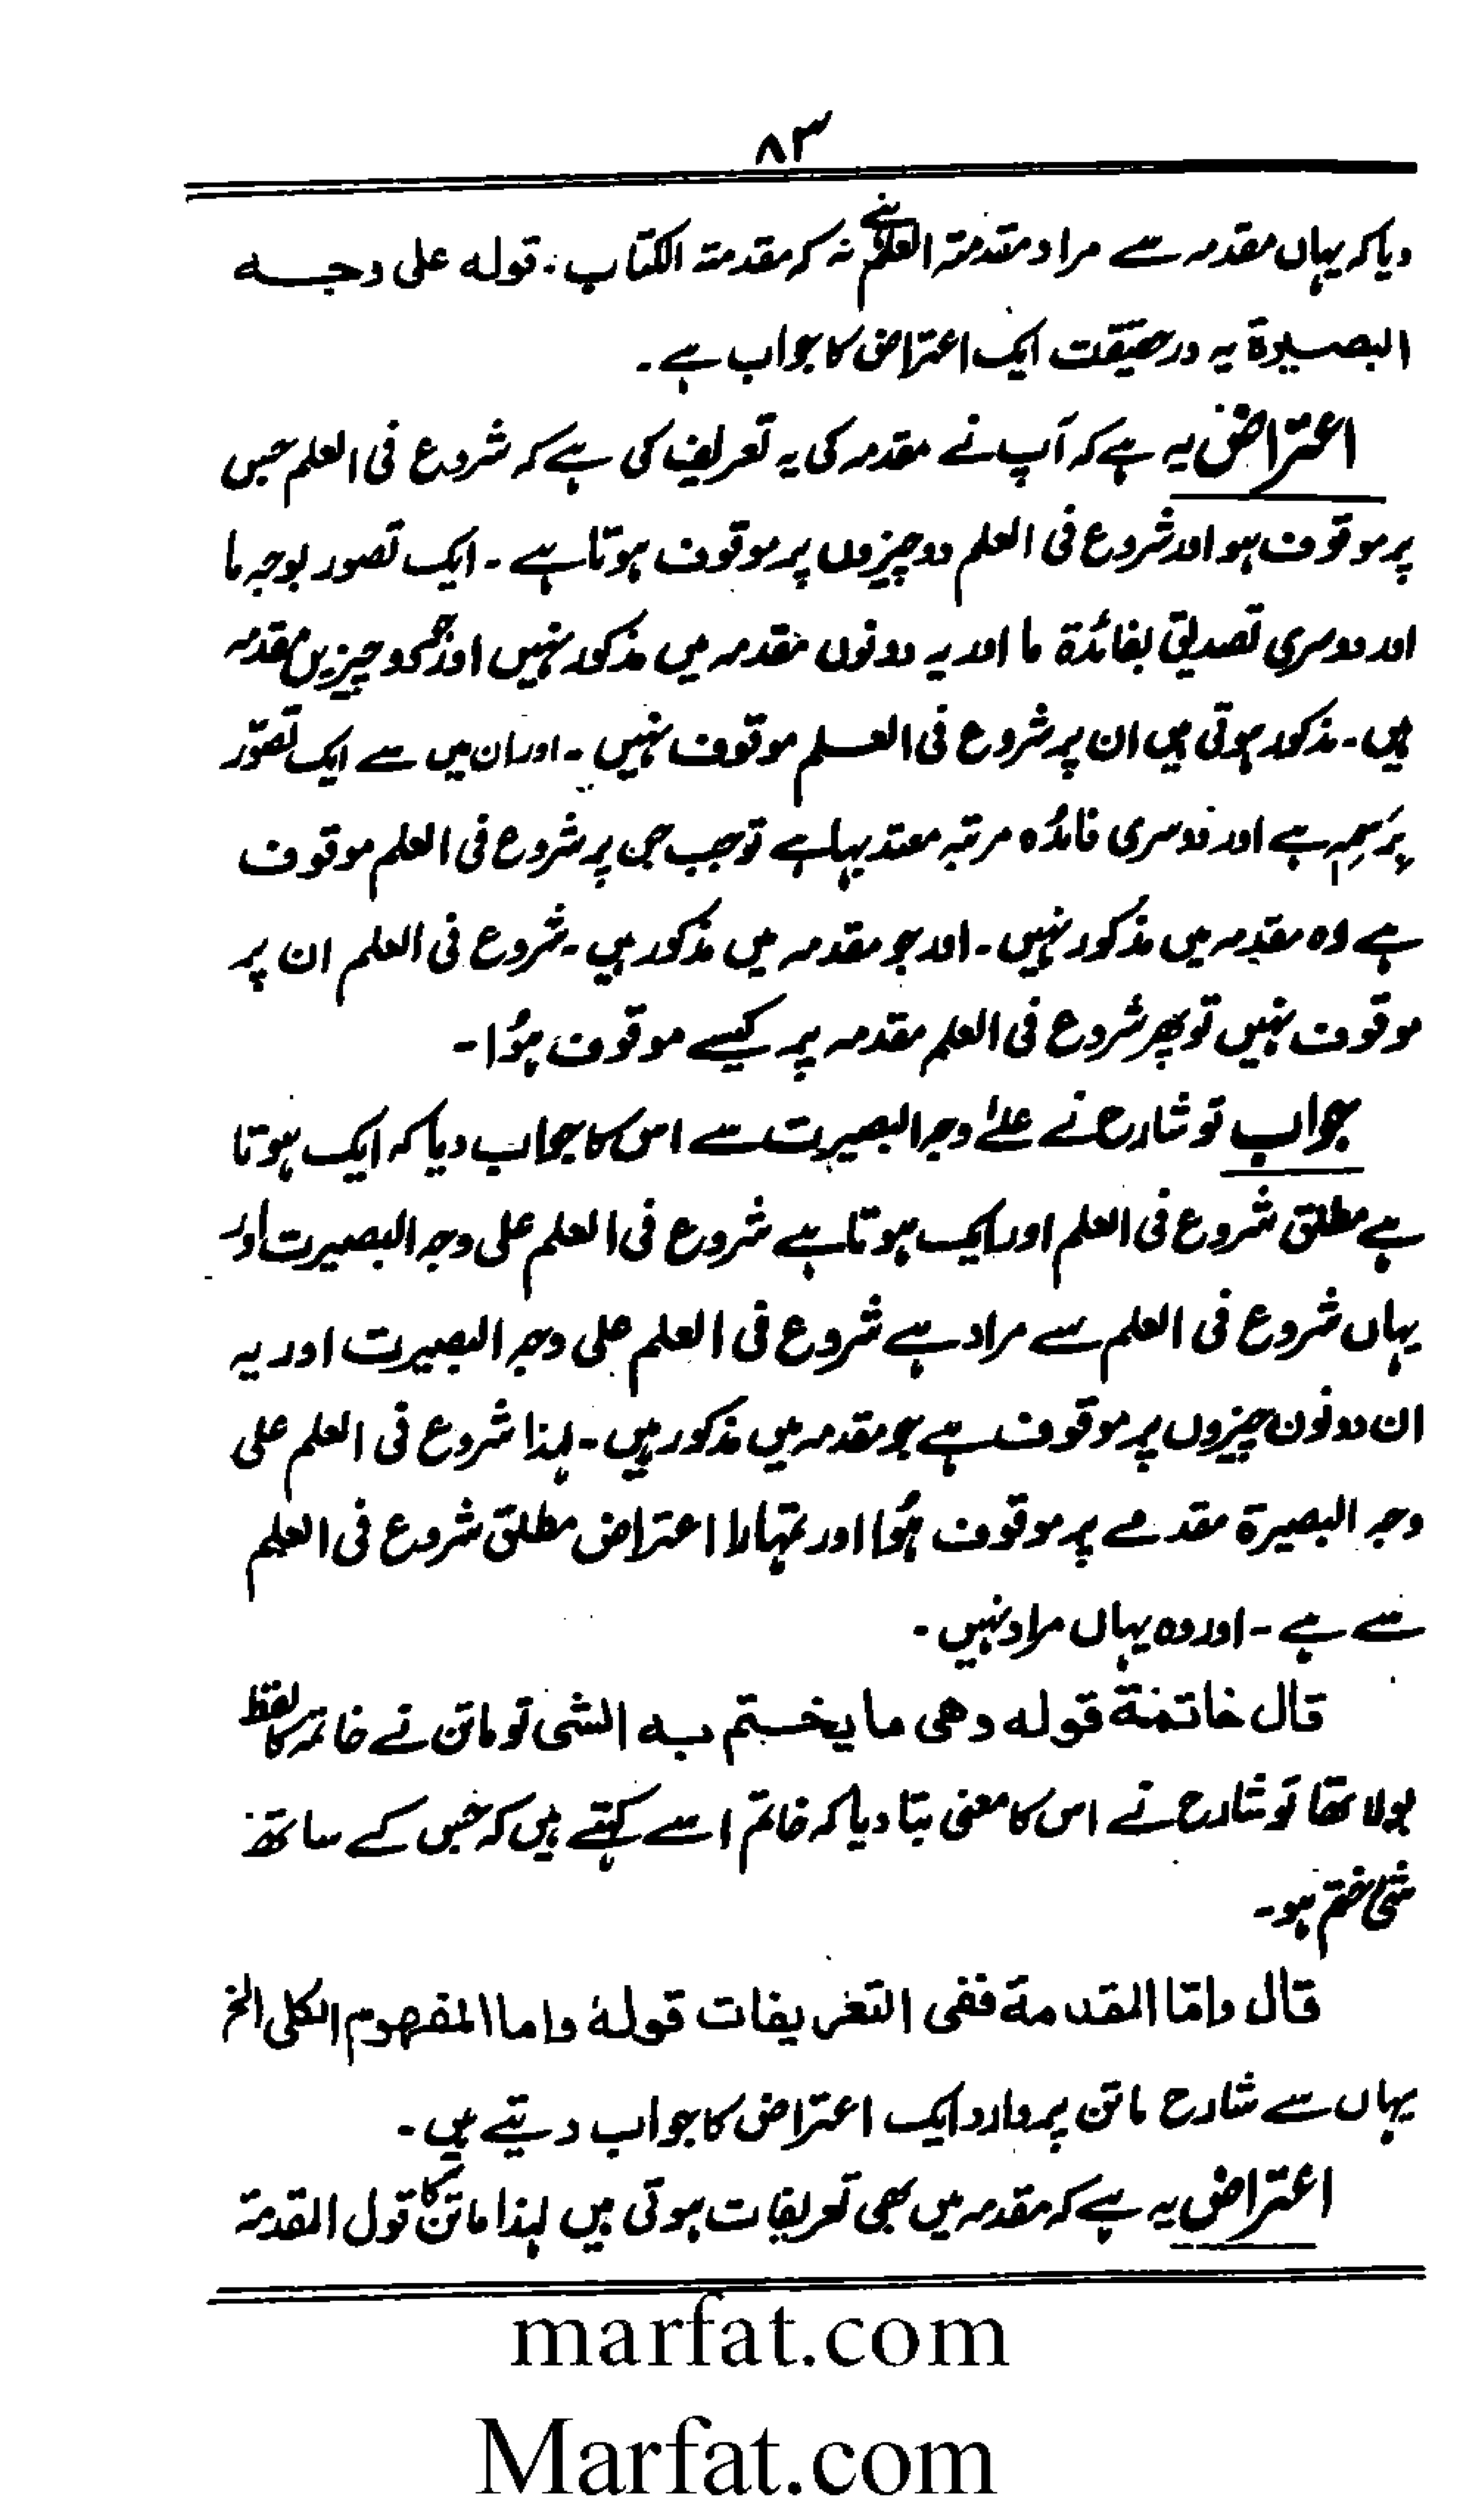 ۸۳
دیا کہ یہاں مقدمہ سے مراد مقدمتہ العلم ہے نہ کہ مقدمتہ الکتاب۔ قولہ علی وجہ
البصیرة یہ درحقیقت ایک اعتراض کا جواب ہے۔
اعتراض یہ ہے کہ آپ نے مقدمہ کی یہ تعریف کی ہے کہ شروع فی العلم جس
پر موقوف ہو اور شروع فی العلم دو چیزوں پر موقوف ہوتا ہے۔ ایک تصور بوجہ ما
اور دوسری تصدیق بفائدة ما اور یہ دونوں مقدمہ میں مذکور نہیں اور جو چیزیں مقدمہ
میں۔ مذکور ہوتی ہیں ان پر شروع فی العلم موقوف نہیں۔ اور ان میں سے ایک تصوّر
برسمہٖ ہے اور دوسری فائدہ مرتبہ معتد بہا ہے تو جب جن پر شروع فی العلم موقوف
ہے وہ مقدمہ میں مذکور نہیں۔ اور جو مقدمہ میں مذکور ہیں۔ شروع فی العلم ان پر
موقوف نہیں تو پھر شروع فی العلم مقدمہ پر کیسے موقوف ہؤا۔
جواب تو شارح نے علیٰ وجہ البصیرت سے اس کا جواب دیا کہ ایک ہوتا
ہے مطلق شروع فی العلم اور ایک ہوتا ہے شروع فی العلم علی وجہ البصیرت اور
یہاں شروع فی العلم سے مراد ہے شروع فی العلم علی وجہ البصیرت اور یہ
ان دونوں چیزوں پر موقوف ہے جو مقدمہ میں مذکور ہیں۔ لہذا شروع فی العلم علی
وجہ البصیرة مقدمے پر موقوف ہؤا اور تمہارا اعتراض مطلق شروع فی العلم
سے ہے۔ اور وہ یہاں مراد نہیں۔
قال خاتمة قوله وهی ما یختم به الشی تو ماتن نے خاتمہ کا لفظ
بولا تھا تو شارح نے اس کا معنی بتا دیا کہ خاتم اسے کہتے ہیں کہ جس کے ساتھ
شئی ختم ہو۔
قال واما المقدمة ففی التعریفات قولهٗ واما المفهوم الکلی الخ
یہاں سے شارح ماتن پر وارد ایک اعتراض کا جواب دیتے ہیں۔
اعتراض یہ ہے کہ مقدمہ میں بھی تعریفات ہوتی ہیں لہذا ماتن کا قول المقدمة
marfat.com
Marfat.com